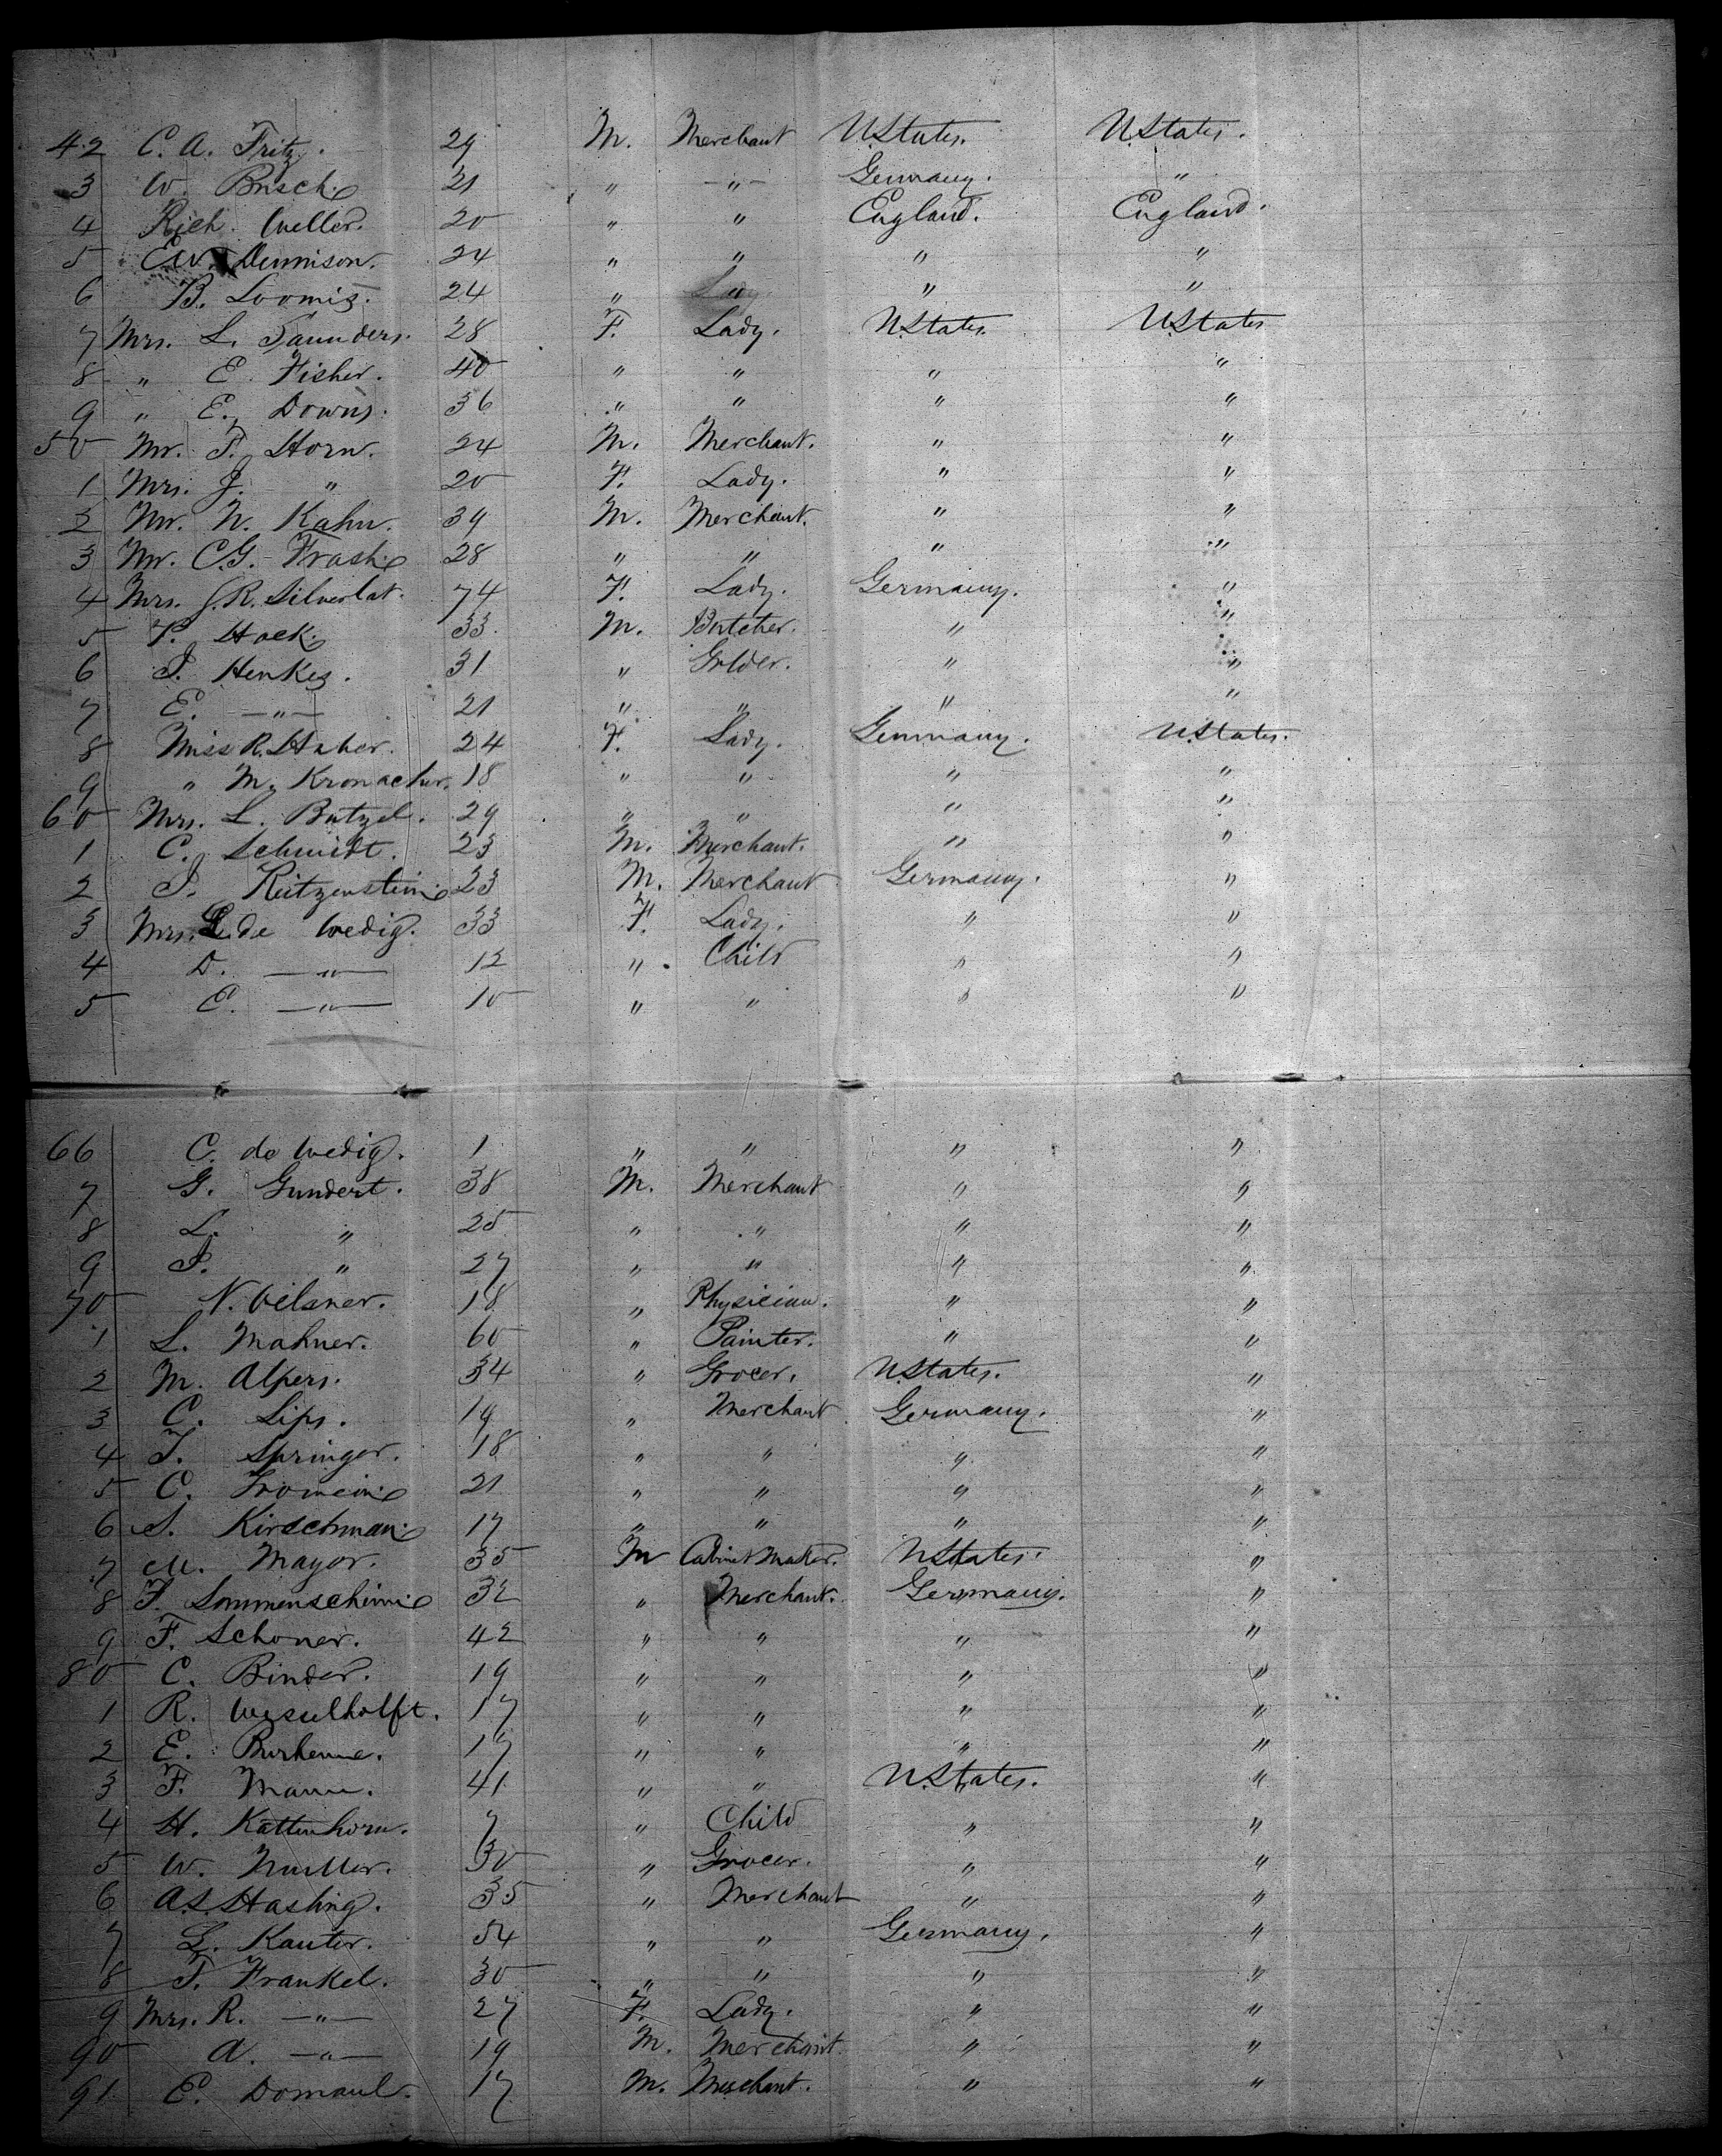 42 C. A. Fritz. 29 M. Merchant U.States. U.States.
3 W. Busch. 21 " —"— Germany. "
4 Rich. Weller. 20 " " England. England.
5 E.W. Dennison. 24 " " " "
6 B. Loomis. 24 " " " "
7 Mrs. L. Saunders. 28 F. Lady. U.States. U.States
8 " E. Fisher. 40 " " " "
9 " E. Downs. 36 " " " "
50 Mr. F. Horn. 24 M. Merchant. " "
1 Mrs. J. " 20 F. Lady. " "
2 Mr. N. Kahn. 39 M. Merchant. " "
3 Mr. C.G. Frash. 28 " " " "
4 Mrs. J.R. Silverlat. 74 F. Lady. Germany. "
5 P. Hock. 33. M. Butcher. " "
6 J. Henkes. 31 " Golder. " "
7 E. —"— 21 " " " "
8 Miss R. Huber. 24 F. Lady. Germany. U.States.
9 " M. Kronacher. 18 " " " "
60 Mrs. L. Butzel. 29 " " " "
1 C. Schmidt. 23 M. Merchant. " "
2 J. Reitzenstein. 23 M. Merchant Germany. "
3 Mrs. L. de Wedig. 33 F. Lady. " "
4 D. —"— 12 " Child " "
5 C. —"— 10 " " " "
66 C. de Wedig. 1 " " " "
7 G. Gundert. 38 M. Merchant " "
8 L. " 25 " " " "
9 J. " 27 " " " "
70 N. Oelsner. 18 " Physician. " "
1 L. Mahner. 60 " Painter. " "
2 M. Alpers. 34 " Grocer. U.States. "
3 C. Lips. 19 " Merchant Germany. "
4 T. Springer. 18 " " " "
5 C. Fromein. 21 " " " "
6 S. Kirschman. 17 " " " "
7 M. Mayor. 35 M Cabinet Maker. U.States. "
8 F. Sommenschein. 32 " Merchant. Germany. "
9 F. Schoner. 42 " " " "
80 C. Binder. 19 " " " "
1 R. Wesselhoft. 17 " " " "
2 E. Burhenne. 17 " " " "
3 F. Mann. 41 " " U.States. "
4 H. Kattenhorn. 7 " Child " "
5 W. Muller. 30 " Grocer. " "
6 A.S. Hashing. 35 " Merchant " "
7 L. Kanter. 54 " " Germany. "
8 J. Frankel. 30 " " " "
9 Mrs. R. —"— 27 F. Lady. " "
90 A. —"— 19 M. Merchant. " "
91 E. Domaul. 17 M. Merchant. " "